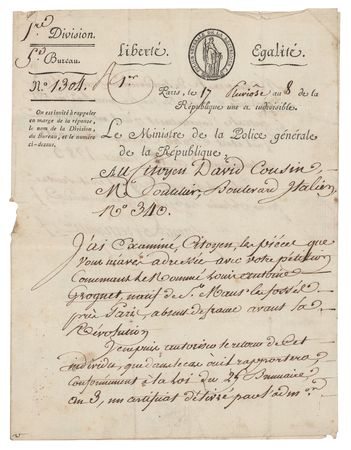 1re Division.
5e Bureau.
No. 1304. A
1er
Liberté
Egalité.
Paris, le 17 Pluviôse an 8 de la
République une et indivisible.
On est invité à rappeler
en marge de la réponse,
le nom de la Division,
du Bureau, et le numéro
ci-dessus.
Le Ministre de la Police générale
de la République,
Au Citoyen David Cousin,
Md Boulevard Italien,
No 340.
J'ai Examiné, Citoyen, les pièces que
vous m'avez adressées avec votre pétition
Concernant le Nommé Louis antoine
Grognet, natif de St Maur les fossés
près Paris, absent de france avant la
Révolution
Je ne puis autoriser le retour de Cet
individu, que dans le cas où il rapportera
Conformément à la loi du 25 Brumaire
an 3, un certificat délivré par l'admon